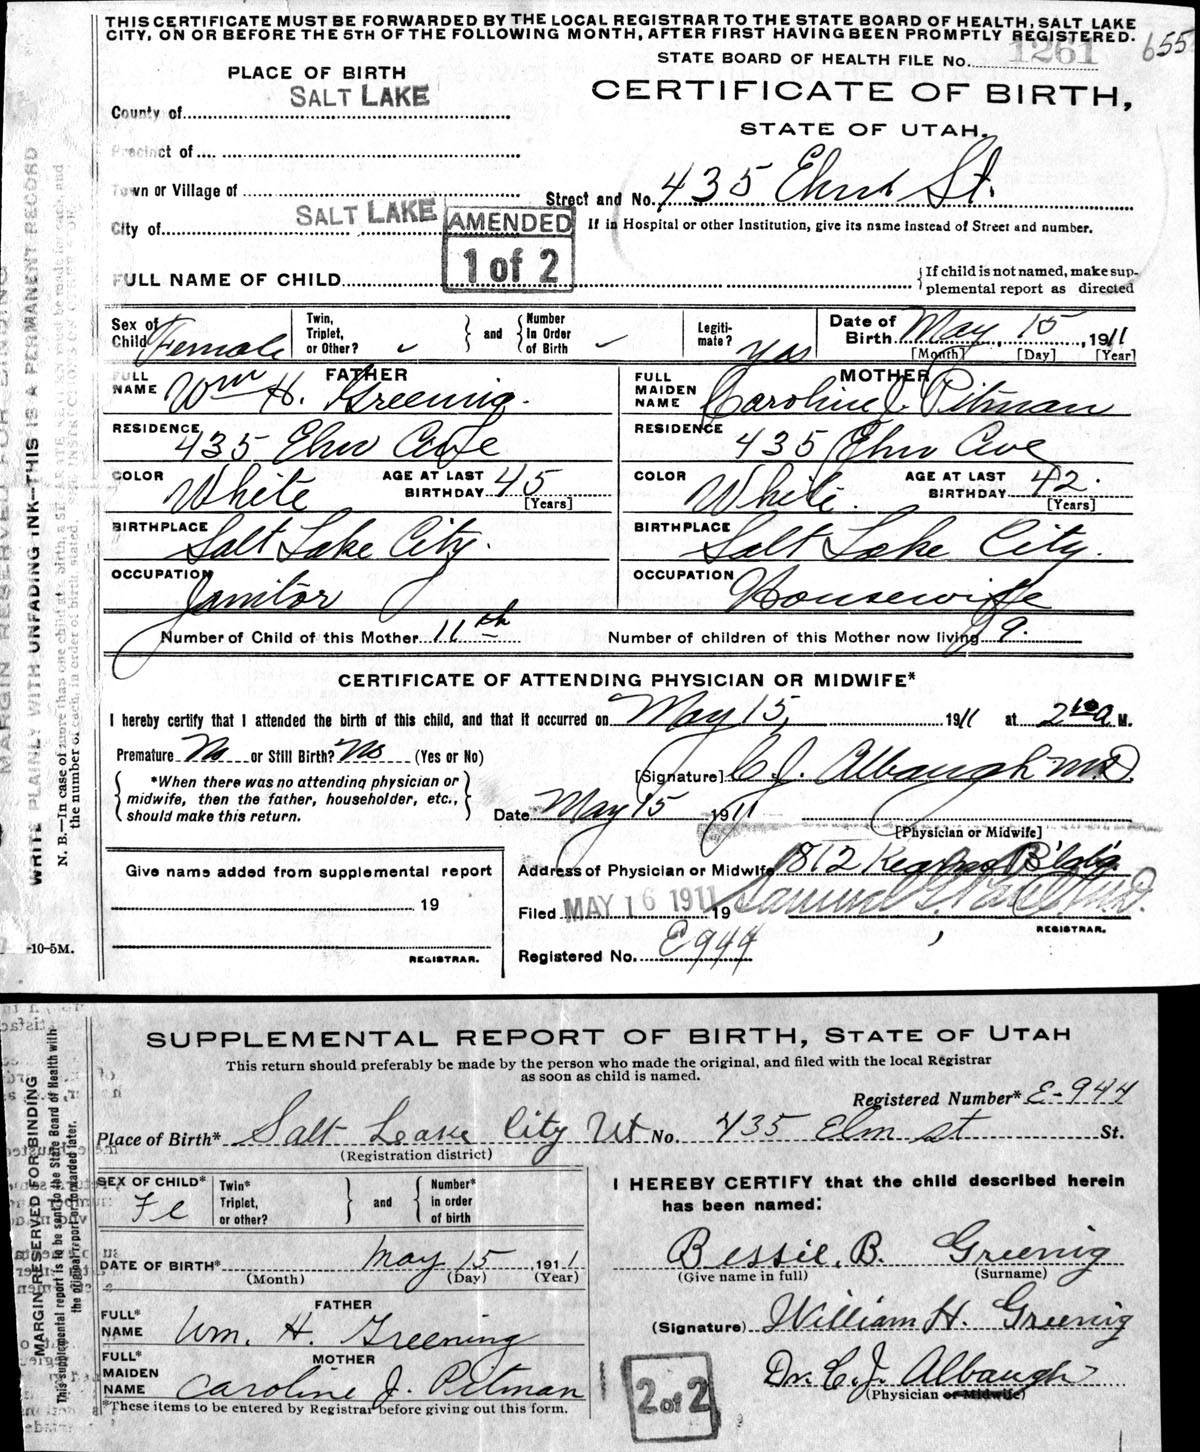 THIS CERTIFICATE MUST BE FORWARDED BY THE LOCAL REGISTRAR TO THE STATE BOARD OF HEALTH, SALT LAKE
CITY, ON OR BEFORE THE 5TH OF THE FOLLOWING MONTH, AFTER FIRST HAVING BEEN PROMPTLY REGISTERED.
STATE BOARD OF HEALTH FILE No. 1261 655
PLACE OF BIRTH
CERTIFICATE OF BIRTH,
STATE OF UTAH.
County of SALT LAKE
Precinct of
Town or Village of
Street and No. 435 Elm St.
City of SALT LAKE
If in Hospital or other Institution, give its name instead of Street and number.
AMENDED
1 of 2
FULL NAME OF CHILD
{If child is not named, make sup-
plemental report as directed
Sex of Child Female
Twin, Triplet, or Other? ✓
and
Number In Order of Birth ✓
Legiti-mate? yes
Date of Birth May 15, 1911
[Month] [Day] [Year]
FATHER
FULL NAME Wm H. Greenig.
RESIDENCE 435 Elm Ave
COLOR White
AGE AT LAST BIRTHDAY 45 [Years]
BIRTHPLACE Salt Lake City.
OCCUPATION Janitor
MOTHER
FULL MAIDEN NAME Caroline J. Pitman
RESIDENCE 435 Elm Ave
COLOR White.
AGE AT LAST BIRTHDAY 42. [Years]
BIRTHPLACE Salt Lake City.
OCCUPATION Housewife
Number of Child of this Mother 11th
Number of children of this Mother now living 9.
CERTIFICATE OF ATTENDING PHYSICIAN OR MIDWIFE*
I hereby certify that I attended the birth of this child, and that it occurred on May 15, 1911 at 2 10 a M.
Premature No or Still Birth? No (Yes or No)
*When there was no attending physician or
midwife, then the father, householder, etc.,
should make this return.
[Signature] C. J. Albaugh M.D.
Date May 15 1911
[Physician or Midwife]
Give name added from supplemental report
19
REGISTRAR.
Address of Physician or Midwife 812 Kearns B'ld'g
Filed MAY 16 1911 19 Samuel G. M.D.
REGISTRAR.
Registered No. E944
-10-5M.
MARGIN RESERVED FOR BINDING
WRITE PLAINLY WITH UNFADING INK—THIS IS A PERMANENT RECORD
N. B.—In case of more than one child at a birth, a SEPARATE
the number of each, in order of birth, stated.
SUPPLEMENTAL REPORT OF BIRTH, STATE OF UTAH
This return should preferably be made by the person who made the original, and filed with the local Registrar
as soon as child is named.
Registered Number* E-944
Place of Birth* Salt Leake City Ut No. 435 Elm st St.
(Registration district)
SEX OF CHILD* Fe
Twin* Triplet, or other?
and
Number* in order of birth
DATE OF BIRTH* May 15, 1911
(Month) (Day) (Year)
FATHER
FULL* NAME Wm. H. Greening
MOTHER
FULL* MAIDEN NAME Caroline J. Pitman
*These items to be entered by Registrar before giving out this form.
I HEREBY CERTIFY that the child described herein
has been named:
Bessie, B. Greenig
(Give name in full) (Surname)
(Signature) William H. Greenig
Dr. C. J. Albaugh
(Physician or Midwife)
2 of 2
MARGIN RESERVED FOR BINDING
This supplemental report is to be sent to the State Board of Health with
the original report or forwarded later.